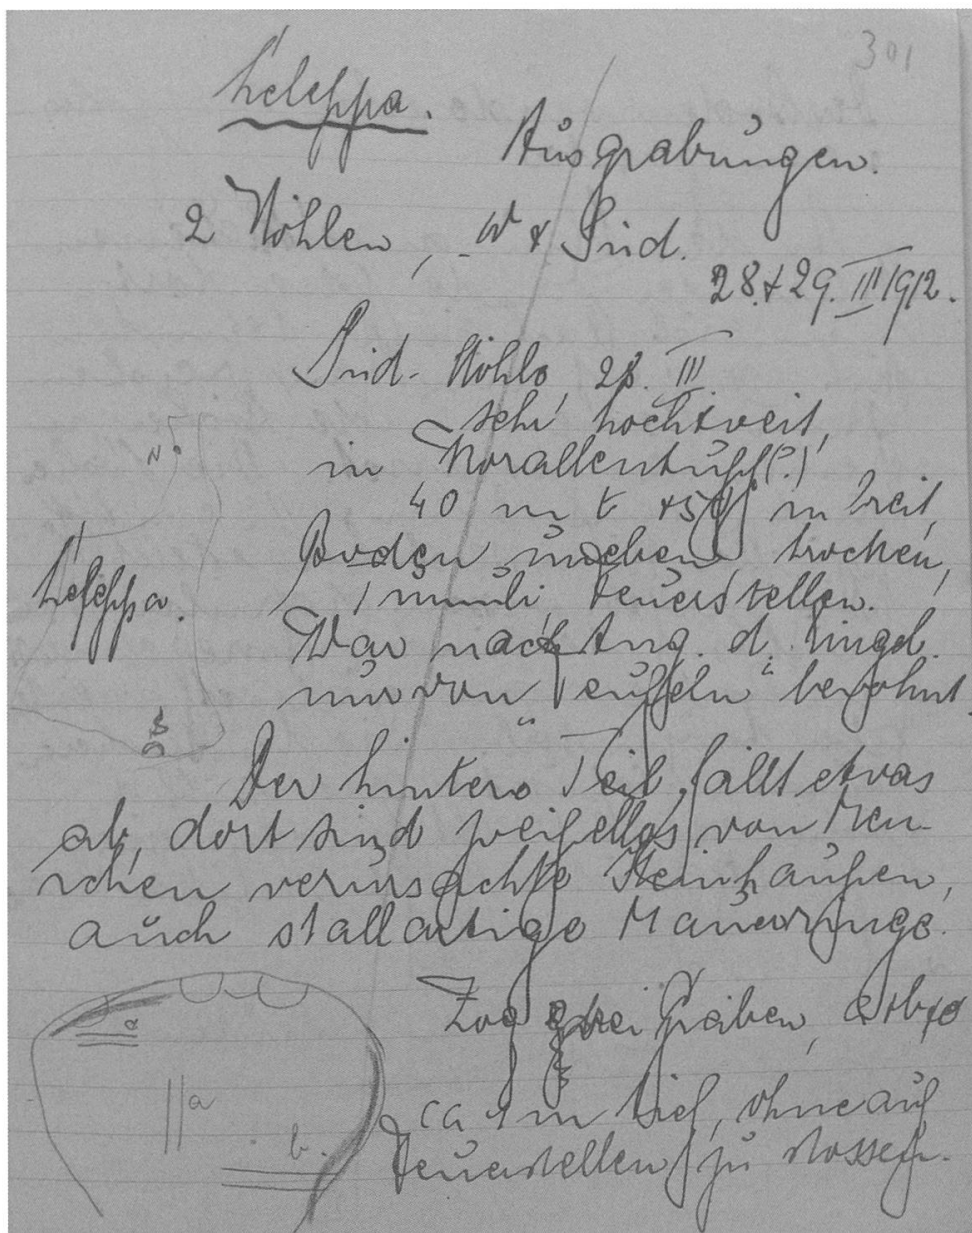 301
Leleppa.
Ausgrabungen.
2 Höhlen, - W + Süd.
28. + 29. III 1912.
Süd-Höhle 28. III
sehr hoch + weit,
in Korallentuff(?)
40 m t + 50 m breit,
Boden uneben, trocken,
Feuerstellen.
Leleppa.
N
War nach Ang. d. Eingeb.
nur von „Teuffeln“ bewohnt.
Der hintere Teil fällt etwas
ab, dort sind zweifellos von Men-
schen verursachte Steinhaufen,
auch stallartige Mauerringe.
Zog drei Gräben, a + b + c
ca 1 m tief, ohne auf
Feuerstellen zu stossen.
a
b.